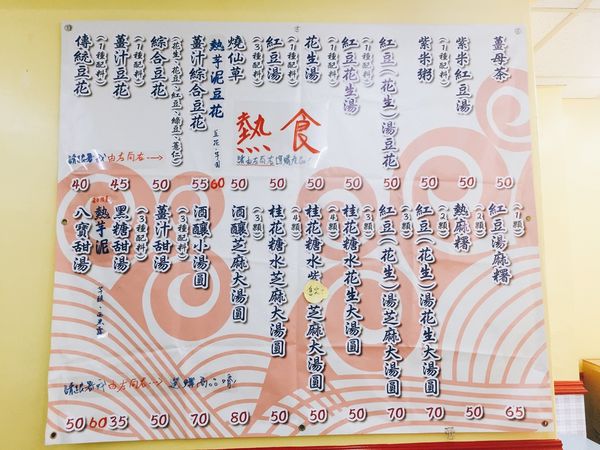 傳統豆花
(1種配料)
薑汁豆花
(1種配料)
綜合豆花
(花生、花豆、紅豆、綠豆、薏仁)
薑汁綜合豆花
熱芋泥豆花
燒仙草
(3種配料)
紅豆湯
(1種配料)
花生湯
(1種配料)
紅豆花生湯
(1種配料)
紅豆(花生)湯豆花
紫米粥
紫米紅豆湯
薑母茶
熱食
由左而右
40 45 50 55 60 50 50 50 50 50 50 50 50
八寶甜湯
熱芋泥
黑糖甜湯
(3種配料)
薑汁甜湯
(3種配料)
酒釀小湯圓
酒釀芝麻大湯圓
(3顆)
桂花糖水芝麻大湯圓
(4顆)
桂花糖水
芝麻大湯圓
(4顆)
桂花糖水花生大湯圓
(3顆)
紅豆(花生)湯芝麻大湯圓
(3顆)
紅豆(花生)湯花生大湯圓
(2顆)
熱麻糬
(2顆)
紅豆湯麻糬
(1顆)
由左而右
50 60 35 50 70 80 50 50 50 70 70 50 65